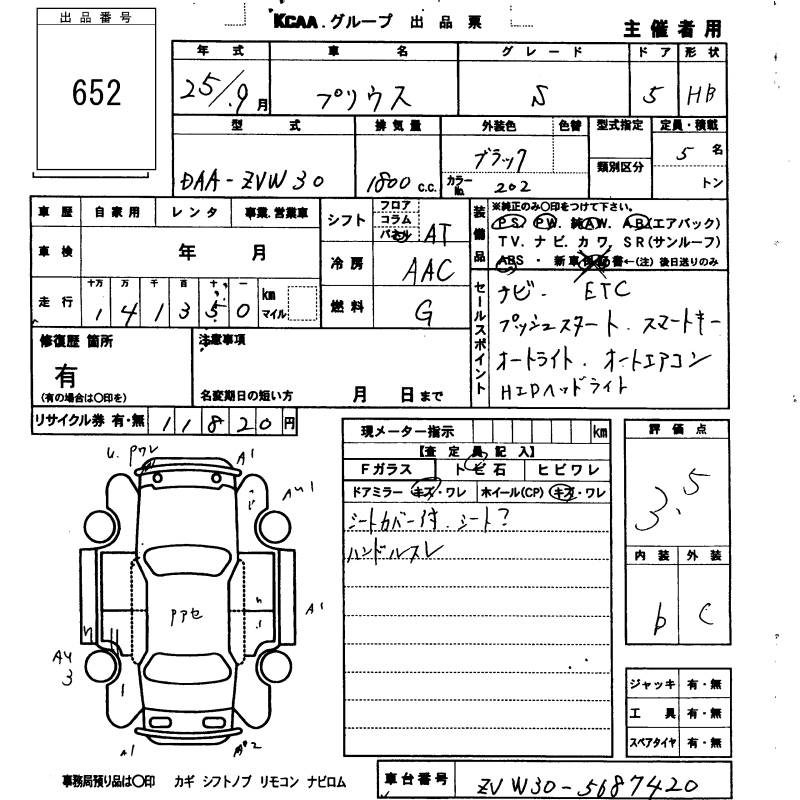 出品番号
652
KCAA.グループ 出品票
主催者用
年式 車名 グレード ドア 形状
25/9月 プリウス S 5 HB
型式 排気量 外装色 色替 型式指定 定員・積載
DAA-ZVW30 1800c.c. ブラック 5名
カラーNo. 202 類別区分 トン
車歴 自家用 レンタ 事業.営業車
シフト フロア コラム パネル AT
車検 年 月
冷房 AAC
走行 十万 万 千 百 十 一
141350 km マイル
燃料 G
装備品 ※純正のみ〇印をつけて下さい。
PS. PW. 純AW. AB(エアバック)
TV. ナビ. カワ. SR(サンルーフ)
ABS・新車保証書←(注)後日送りのみ
セールスポイント
ナビ. ETC
プッシュスタート. スマートキー
オートライト. オートエアコン
HIDヘッドライト
修復歴 箇所 注意事項
有
(有の場合は〇印を) 名変期日の短い方 月 日まで
リサイクル券 有・無 11820円
現メーター指示 km
【査定員記入】
Fガラス トビ石 ヒビワレ
ドアミラー キズ・ワレ ホイール(CP) キズ・ワレ
シートカバー付. シート?
ハンドルスレ
評価点
3.5
内装 外装
b C
U.ワレ A1
A41
アアセ
A1
A4
3
A1 2
ジャッキ 有・無
工具 有・無
スペアタイヤ 有・無
事務局預り品は〇印 カギ シフトノブ リモコン ナビロム
車台番号 ZVW30-5687420